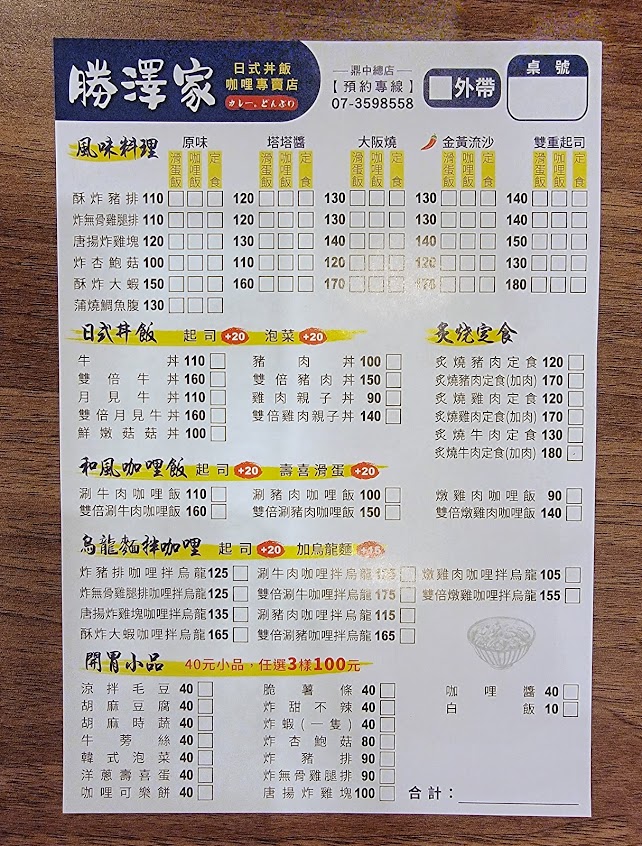 勝澤家 日式丼飯 咖哩專賣店 カレー。どんぶり
鼎中總店
【預約專線】
07-3598558
外帶
桌號
風味料理 原味 塔塔醬 大阪燒 金黃流沙 雙重起司
滑蛋飯 咖哩飯 定食 滑蛋飯 咖哩飯 定食 滑蛋飯 咖哩飯 定食 滑蛋飯 咖哩飯 定食 滑蛋飯 咖哩飯 定食
酥炸豬排 110 120 130 130 140
炸無骨雞腿排 110 120 130 130 140
唐揚炸雞塊 120 130 140 140 150
炸杏鮑菇 100 110 120 120 130
酥炸大蝦 150 160 170 170 180
蒲燒鯛魚腹 130
日式丼飯 起司 +20 泡菜 +20
牛丼 110 豬肉丼 100
雙倍牛丼 160 雙倍豬肉丼 150
月見牛丼 110 雞肉親子丼 90
雙倍月見牛丼 160 雙倍雞肉親子丼 140
鮮嫩菇菇丼 100
炙燒定食
炙燒豬肉定食 120
炙燒豬肉定食(加肉) 170
炙燒雞肉定食 120
炙燒雞肉定食(加肉) 170
炙燒牛肉定食 130
炙燒牛肉定食(加肉) 180
和風咖哩飯 起司 +20 壽喜滑蛋 +20
涮牛肉咖哩飯 110 涮豬肉咖哩飯 100 燉雞肉咖哩飯 90
雙倍涮牛肉咖哩飯 160 雙倍涮豬肉咖哩飯 150 雙倍燉雞肉咖哩飯 140
烏龍麵拌咖哩 起司 +20 加烏龍麵 +15
炸豬排咖哩拌烏龍 125 涮牛肉咖哩拌烏龍 燉雞肉咖哩拌烏龍 105
炸無骨雞腿排咖哩拌烏龍 125 雙倍涮牛咖哩拌烏龍 175 雙倍燉雞咖哩拌烏龍 155
唐揚炸雞塊咖哩拌烏龍 135 涮豬肉咖哩拌烏龍 115
酥炸大蝦咖哩拌烏龍 165 雙倍涮豬咖哩拌烏龍 165
開胃小品 40元小品，任選3樣100元
涼拌毛豆 40 脆薯條 40 咖哩醬 40
胡麻豆腐 40 炸甜不辣 40 白飯 10
胡麻時蔬 40 炸蝦(一隻) 40
牛蒡絲 40 炸杏鮑菇 80
韓式泡菜 40 炸豬排 90
洋蔥壽喜蛋 40 炸無骨雞腿排 90
咖哩可樂餅 40 唐揚炸雞塊 100
合計：